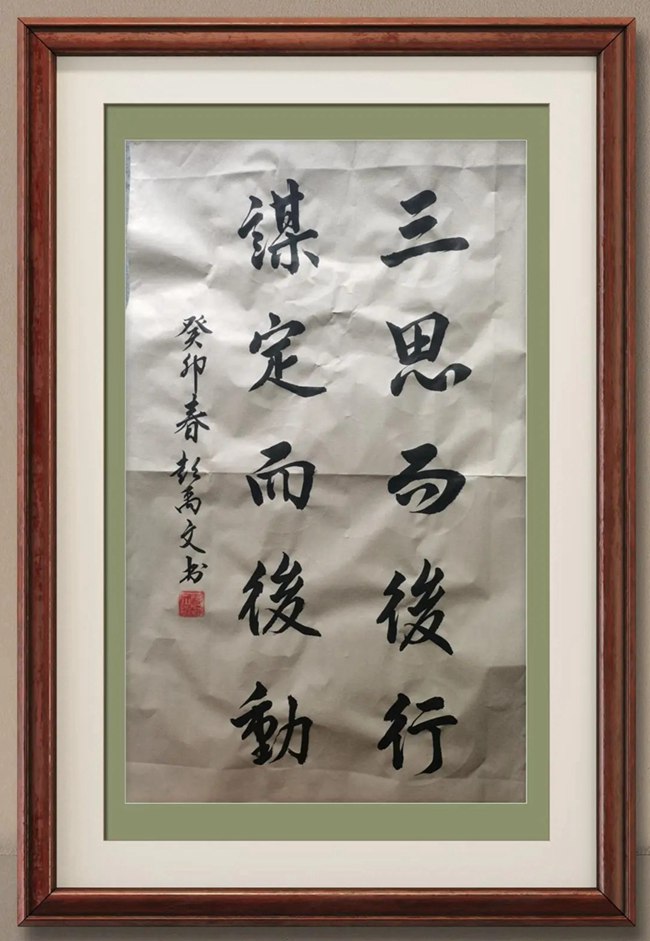 三思而後行
謀定而後動
癸卯春彭禹文书